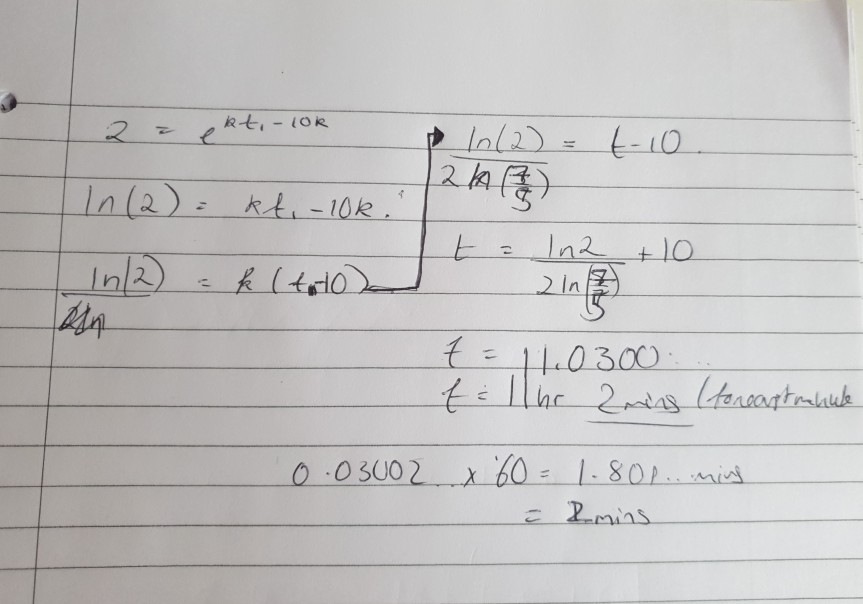 2 = e^{kt₁ - 10k}
ln(2) = kt₁ - 10k.
ln(2) = k(t-10)
ln(2) / 2 ln(7/5) = t - 10.
t = ln2 / 2 ln(7/5) + 10
t = 11.0300...
t = 11hr 2mins (
0.03002... x 60 = 1.801... mins
= 2mins